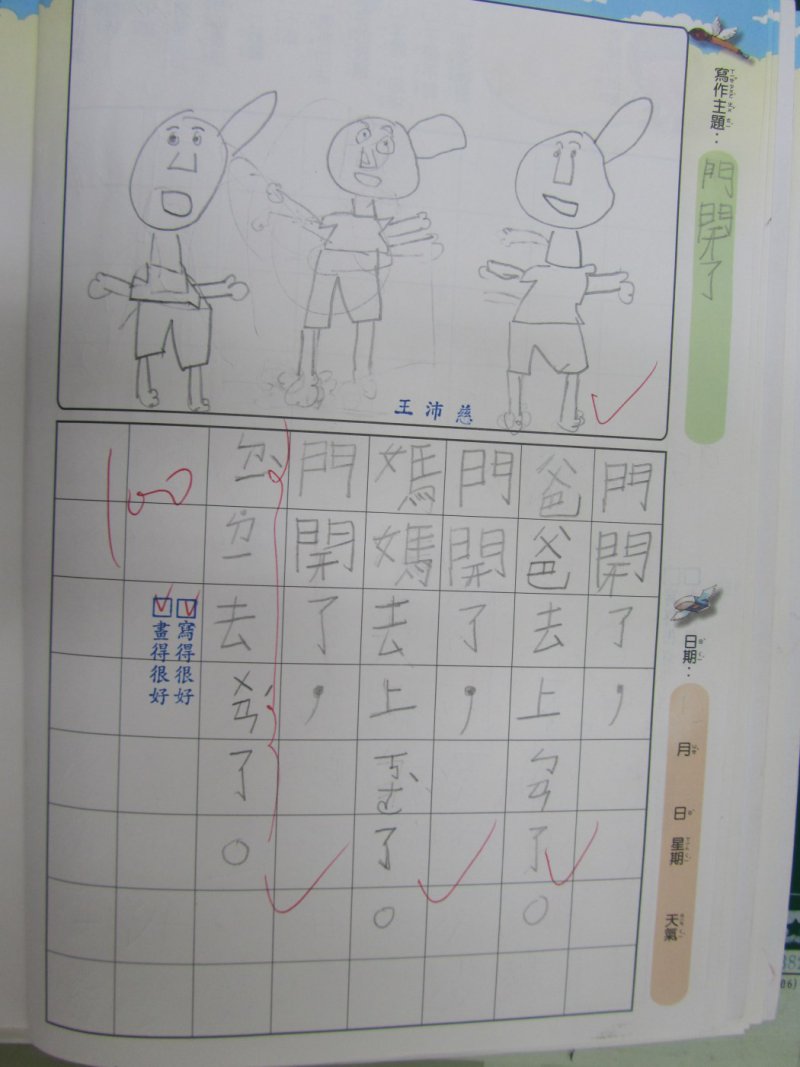 寫作主題：
門開了
王沛慈
門開了，
爸爸去上ㄅㄢ了。
門開了，
媽媽去上ㄎㄜˋ了。
門開了，
去ㄨㄢˊ了。
100
寫得很好
畫得很好
日期：
月
日
星期
天氣